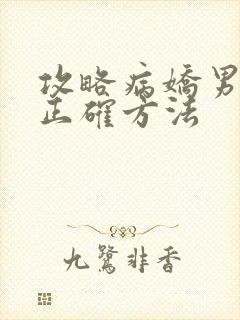 攻略病嬌男
正確方法
九鷺非香